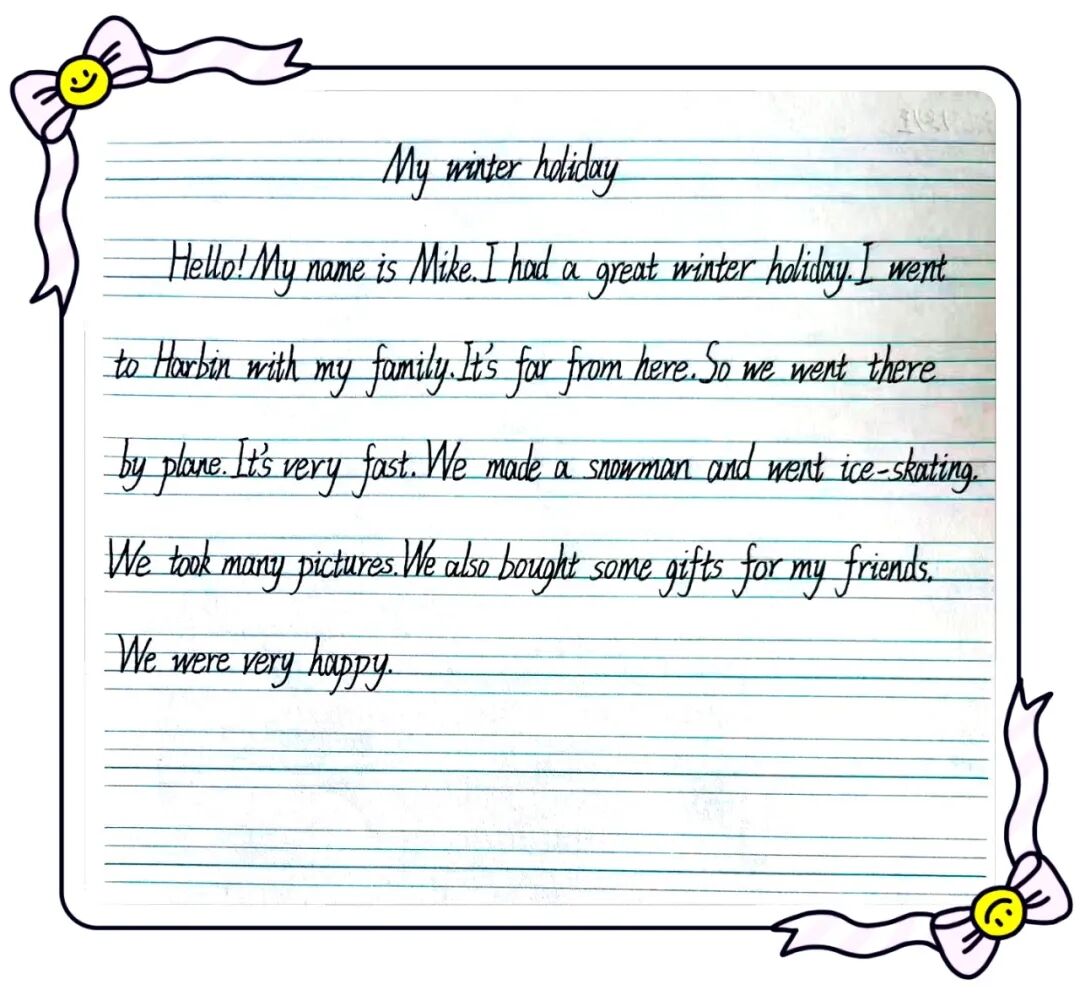 My winter holiday
Hello! My name is Mike. I had a great winter holiday. I went
to Harbin with my family. It's far from here. So we went there
by plane. It's very fast. We made a snowman and went ice-skating.
We took many pictures. We also bought some gifts for my friends.
We were very happy.